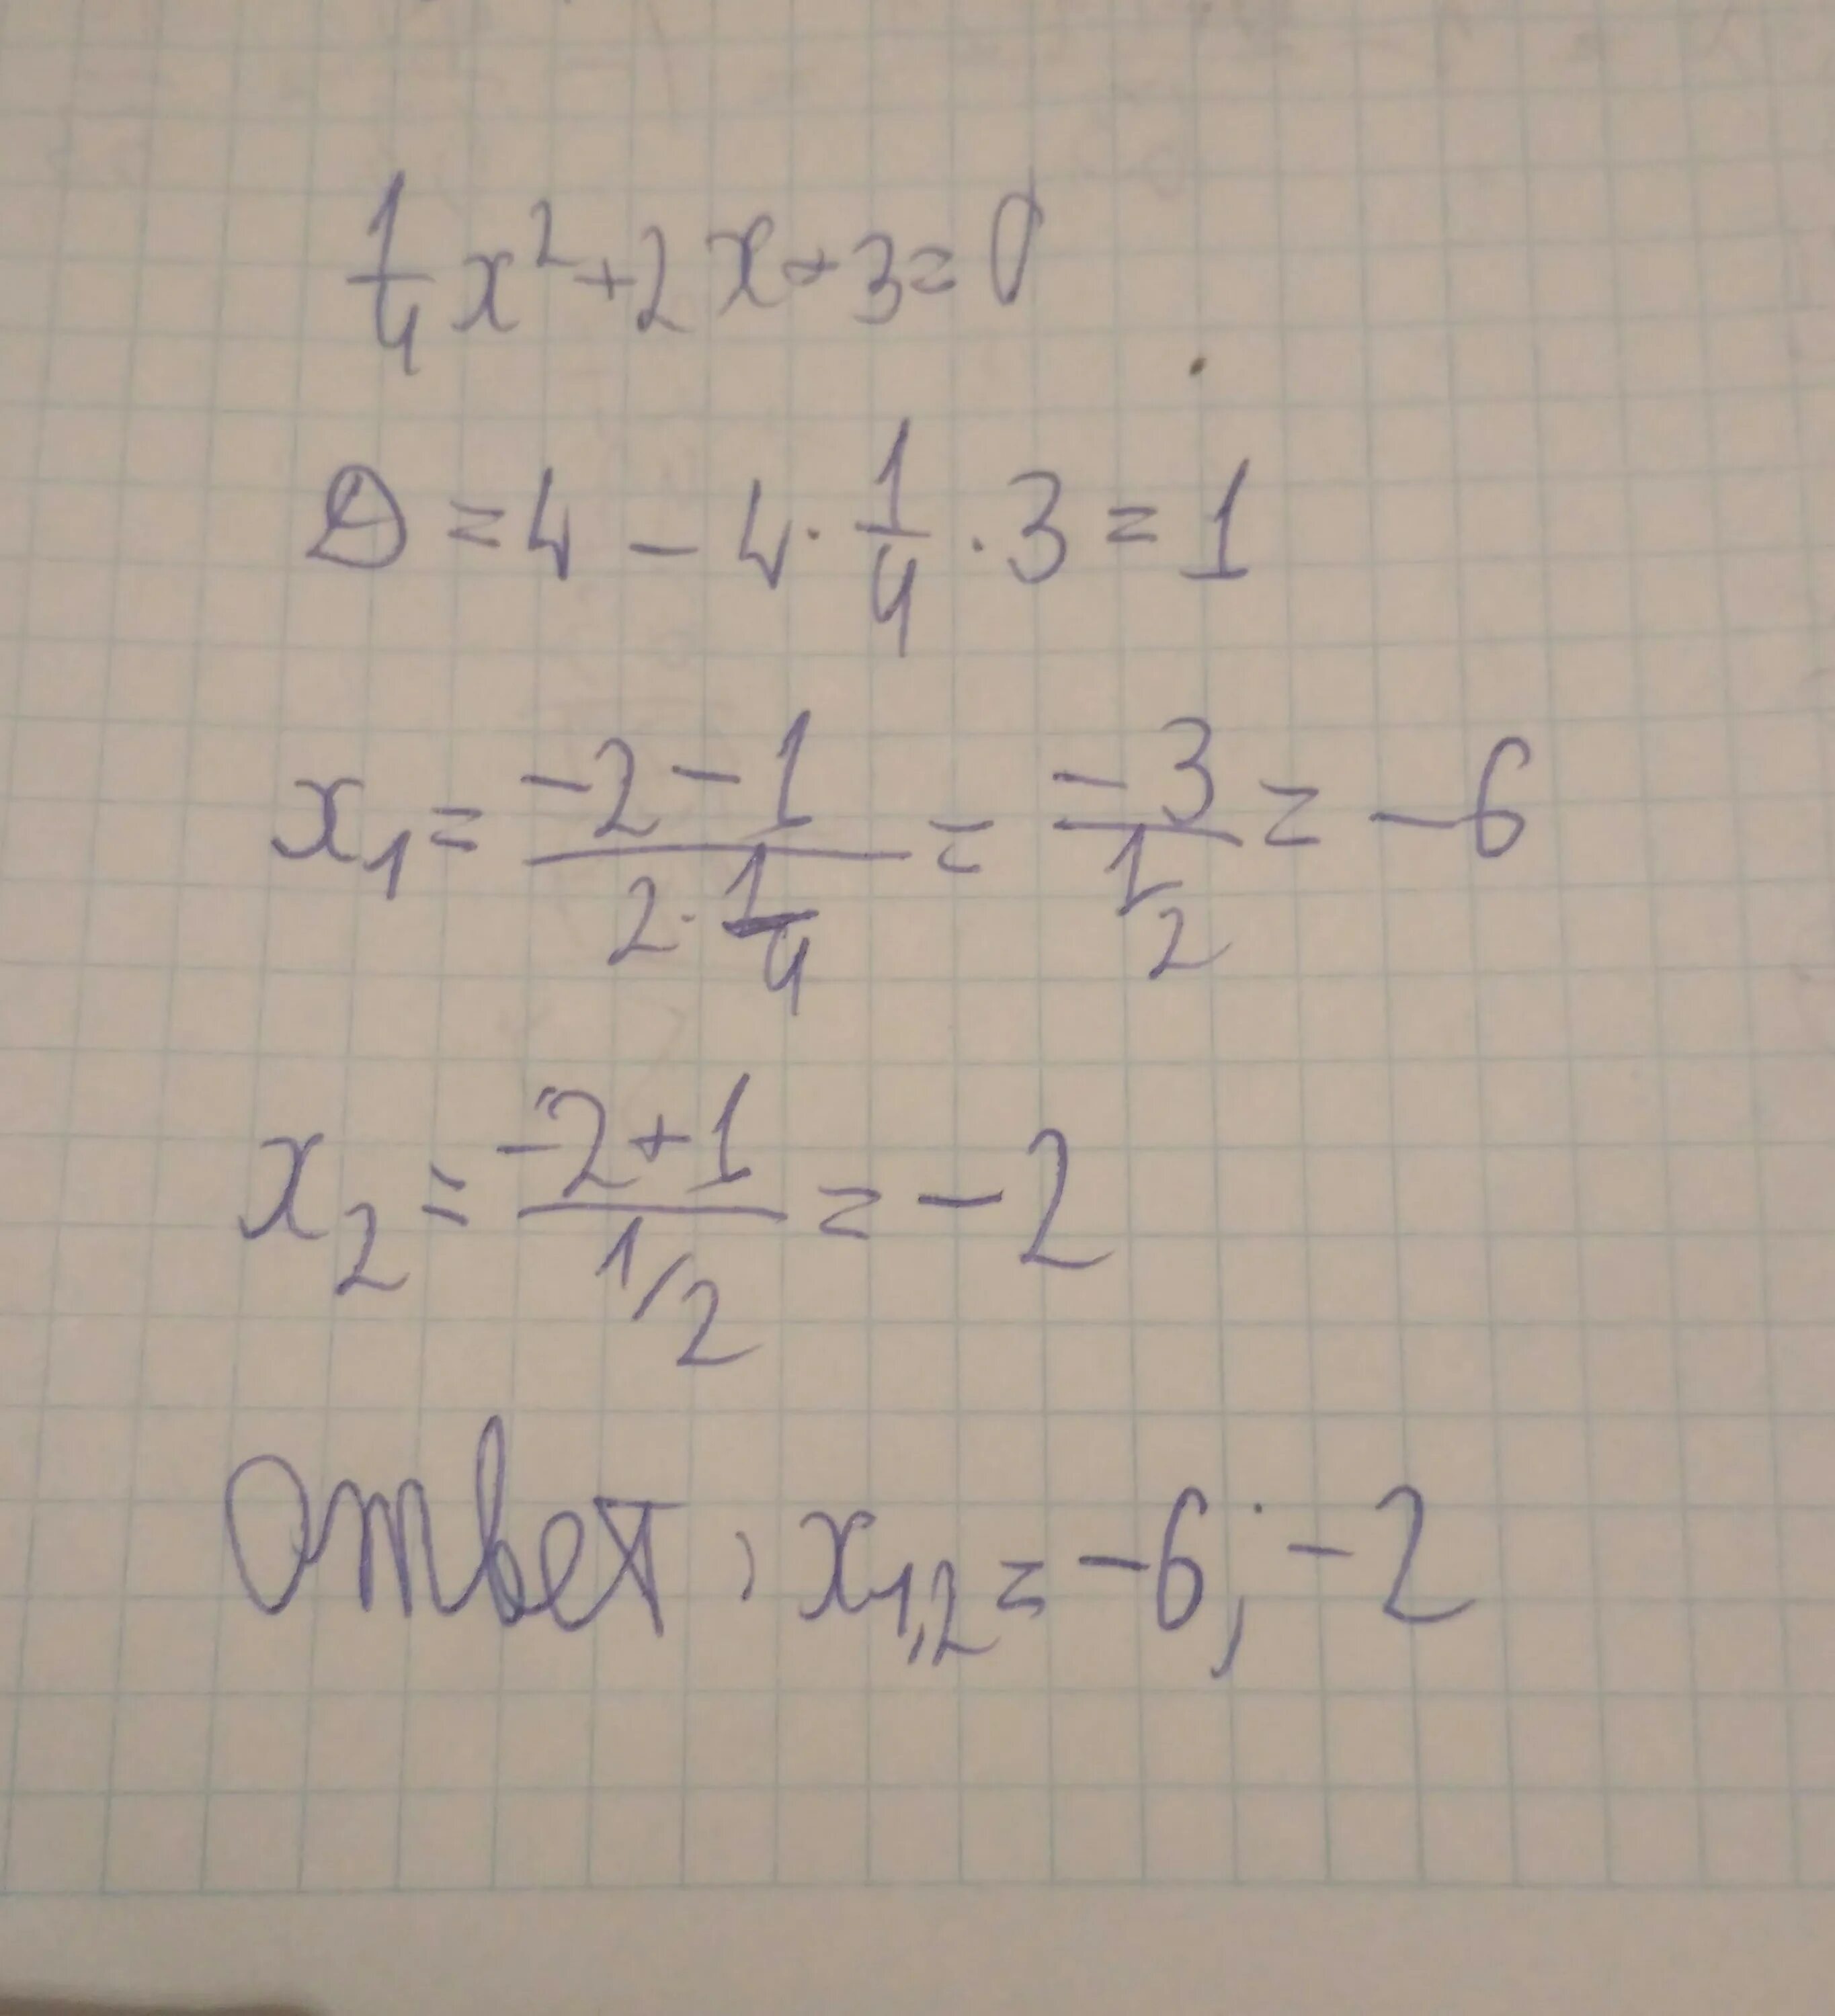 1/4 x² + 2x + 3 = 0
D = 4 - 4 · 1/4 · 3 = 1
x₁ = (-2 - 1)/(2 · 1/4) = -3/(1/2) = -6
x₂ = (-2 + 1)/(1/2) = -2
Ответ: x₁,₂ = -6; -2